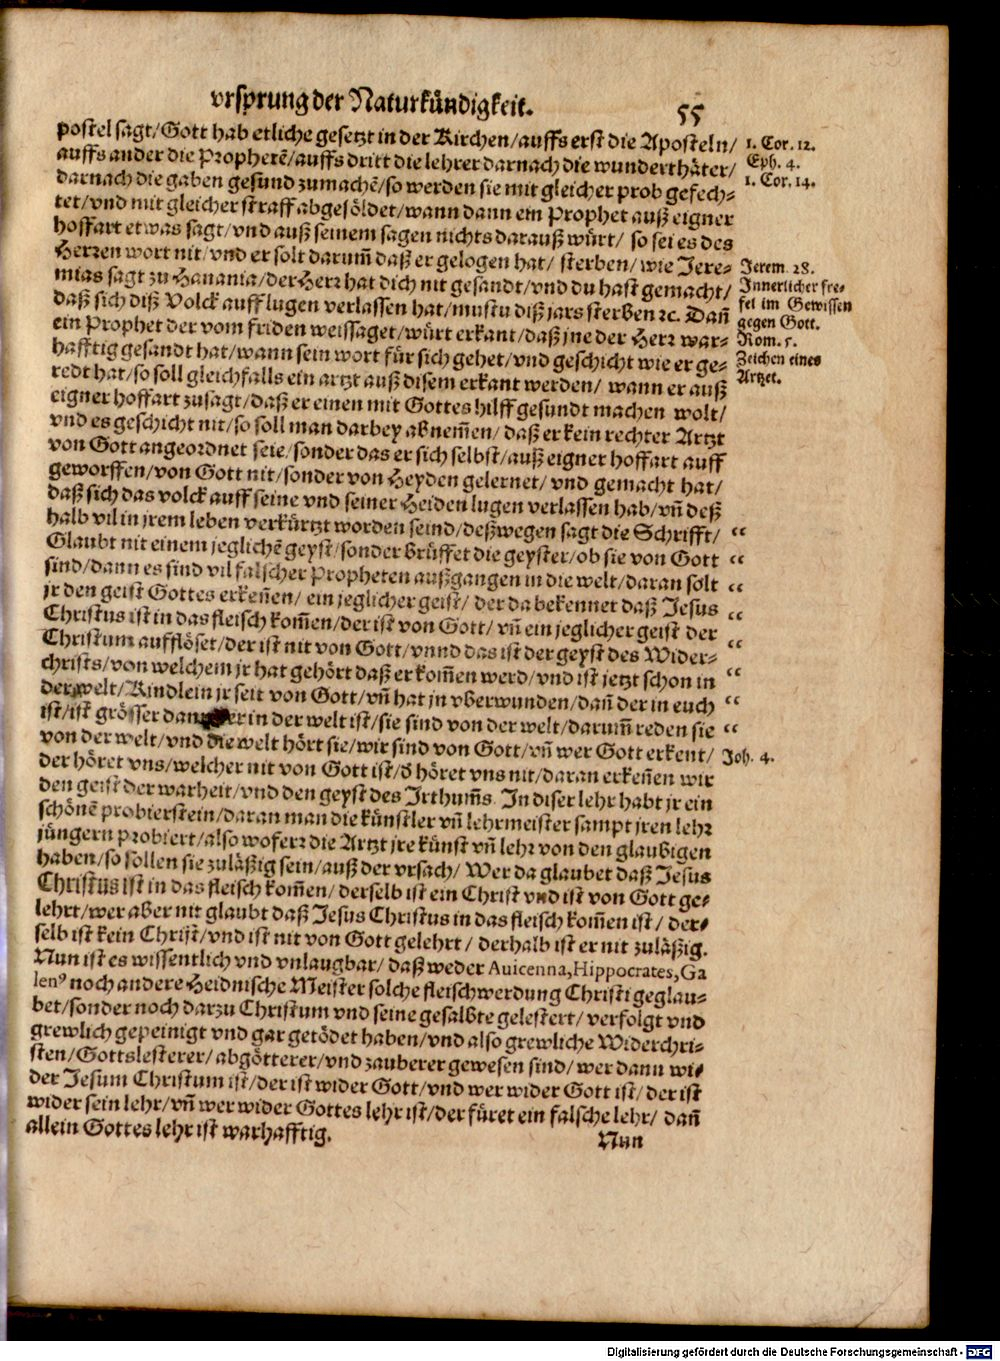 vrsprung der Naturkündigkeit. 55
postel sagt/Gott hab etliche gesetzt in der Kirchen/auffs erst die Aposteln/
auffs ander die Prophetē/auffs dritt die lehrer darnach die wunderthäter/
darnach die gaben gesund zumachē/so werden sie mit gleicher prob gefech-
tet/vnd mit gleicher straff abgesöldet/wann dann ein Prophet auß eigner
hoffart etwas sagt/vnd auß seinem sagen nichts darauß würt/ so sei es des
Herren wort nit/vnd er solt darum̄ daß er gelogen hat/ sterben/ wie Jere-
mias sagt zu Hanania/der Herr hat dich nit gesandt/vnd du hast gemacht/
daß sich diß Volck auff lugen verlassen hat/mustu diß jars sterben ꝛc. Dañ
ein Prophet der vom friden weissaget/würt erkant/daß jne der Herr war-
hafftig gesandt hat/wann sein wort für sich gehet/vnd geschicht wie er ge-
redt hat/so soll gleichfalls ein artzt auß disem erkant werden/ wann er auß
eigner hoffart zusagt/daß er einen mit Gottes hilff gesundt machen wolt/
vnd es geschicht nit/so soll man darbey abnem̄en/ daß er kein rechter Artzt
von Gott angeordnet seie/sonder das er sich selbst/auß eigner hoffart auff
geworffen/von Gott nit/sonder von Heyden gelernet/ vnd gemacht hat/
daß sich das volck auff seine vnd seiner Heiden lugen verlassen hab/vñ deß
halb vil in jrem leben verkürtzt worden seind/deßwegen sagt die Schrifft/
Glaubt nit einem jeglichē geyst/sonder brüffet die geyster/ob sie von Gott
sind/dann es sind vil falscher Propheten außgangen in die welt/daran solt
jr den geist Gottes erkeñen/ ein jeglicher geist/ der da bekennet daß Jesus
Christus ist in das fleisch kom̄en/der ist von Gott/ vñ ein jeglicher geist der
Christum aufflöset/der ist nit von Gott/vnnd das ist der geyst des Wider-
christs/von welchem jr hat gehört daß er kom̄en werd/vnd ist jetzt schon in
der welt/Kindlein jr seit von Gott/vñ hat jn vberwunden/dañ der in euch
ist/ist grösser dann der in der welt ist/sie sind von der welt/darum̄ reden sie
von der welt/vnd die welt hört sie/wir sind von Gott/vñ wer Gott erkent/
der höret vns/welcher nit von Gott ist/d̄ höret vns nit/daran erkeñen wir
den geist der warheit/vnd den geyst des Irthum̄s. In diser lehr habt jr ein
schönē probierstein/daran man die künstler vñ lehrmeister sampt jren lehr
jüngern probiert/also woferr die Artzt jre künst vñ lehr von den glaubigen
haben/so sollen sie zuläßig sein/auß der vrsach/ Wer da glaubet daß Jesus
Christus ist in das fleisch kom̄en/ derselb ist ein Christ vnd ist von Gott ge-
lehrt/wer aber nit glaubt daß Jesus Christus in das fleisch kom̄en ist/ der-
selb ist kein Christ/vnd ist nit von Gott gelehrt/ derhalb ist er nit zuläßig.
Nun ist es wissentlich vnd vnlaugbar/ daß weder Auicenna, Hippocrates, Ga
lenꝰ noch andere Heidnische Meister solche fleischwerdung Christi geglau-
bet/sonder noch darzu Christum vnd seine gesalbte gelestert/ verfolgt vnd
grewlich gepeinigt vnd gar getödet haben/vnd also grewliche Widerchri-
sten/Gottslesterer/ abgötterer/vnd zauberer gewesen sind/ wer dann wi-
der Jesum Christum ist/der ist wider Gott/vnd wer wider Gott ist/ der ist
wider sein lehr/vñ wer wider Gottes lehr ist/der füret ein falsche lehr/ dañ
allein Gottes lehr ist warhafftig.
Nun
1. Cor. 12.
Eph. 4.
1. Cor. 14.
Jerem. 28.
Innerlicher fre-
fel im Gewissen
gegen Gott.
Rom. 5.
Zeichen eines
Artzet.
“
“
“
“
“
“
“
“
Joh. 4.
Digitalisierung gefördert durch die Deutsche Forschungsgemeinschaft - DFG